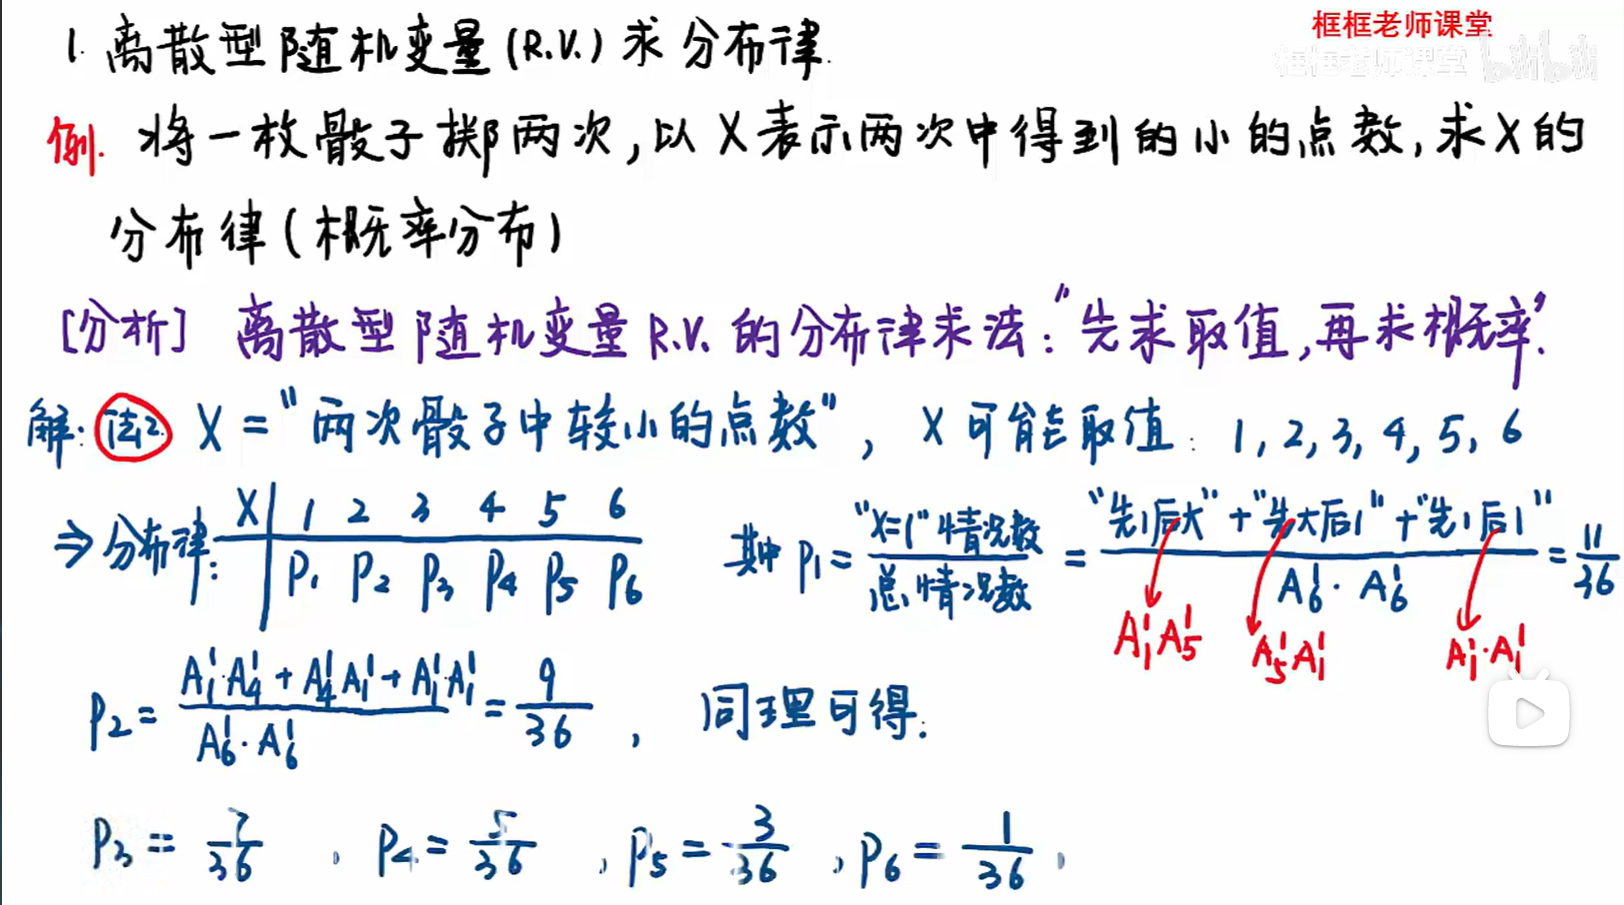 框框老师课堂
框框老师课堂 bilibili
1. 离散型随机变量(R.V.)求分布律.
例. 将一枚骰子掷两次,以X表示两次中得到的小的点数,求X的
分布律(概率分布)
[分析] 离散型随机变量R.V.的分布律求法:"先求取值,再求概率".
解: 法2. X = "两次骰子中较小的点数", X可能取值: 1, 2, 3, 4, 5, 6
⇒ 分布律: X | 1 2 3 4 5 6
P₁ P₂ P₃ P₄ P₅ P₆
其中 P₁ = "X=1"情况数 / 总情况数 = "先1后大" + "先大后1" + "先1后1" / A₆¹ · A₆¹ = 11/36
A₁¹A₅¹ A₅¹A₁¹ A₁¹·A₁¹
P₂ = A₁¹·A₄¹ + A₄¹A₁¹ + A₁¹·A₁¹ / A₆¹·A₆¹ = 9/36 , 同理可得:
P₃ = 7/36 , P₄ = 5/36 , P₅ = 3/36 , P₆ = 1/36 .